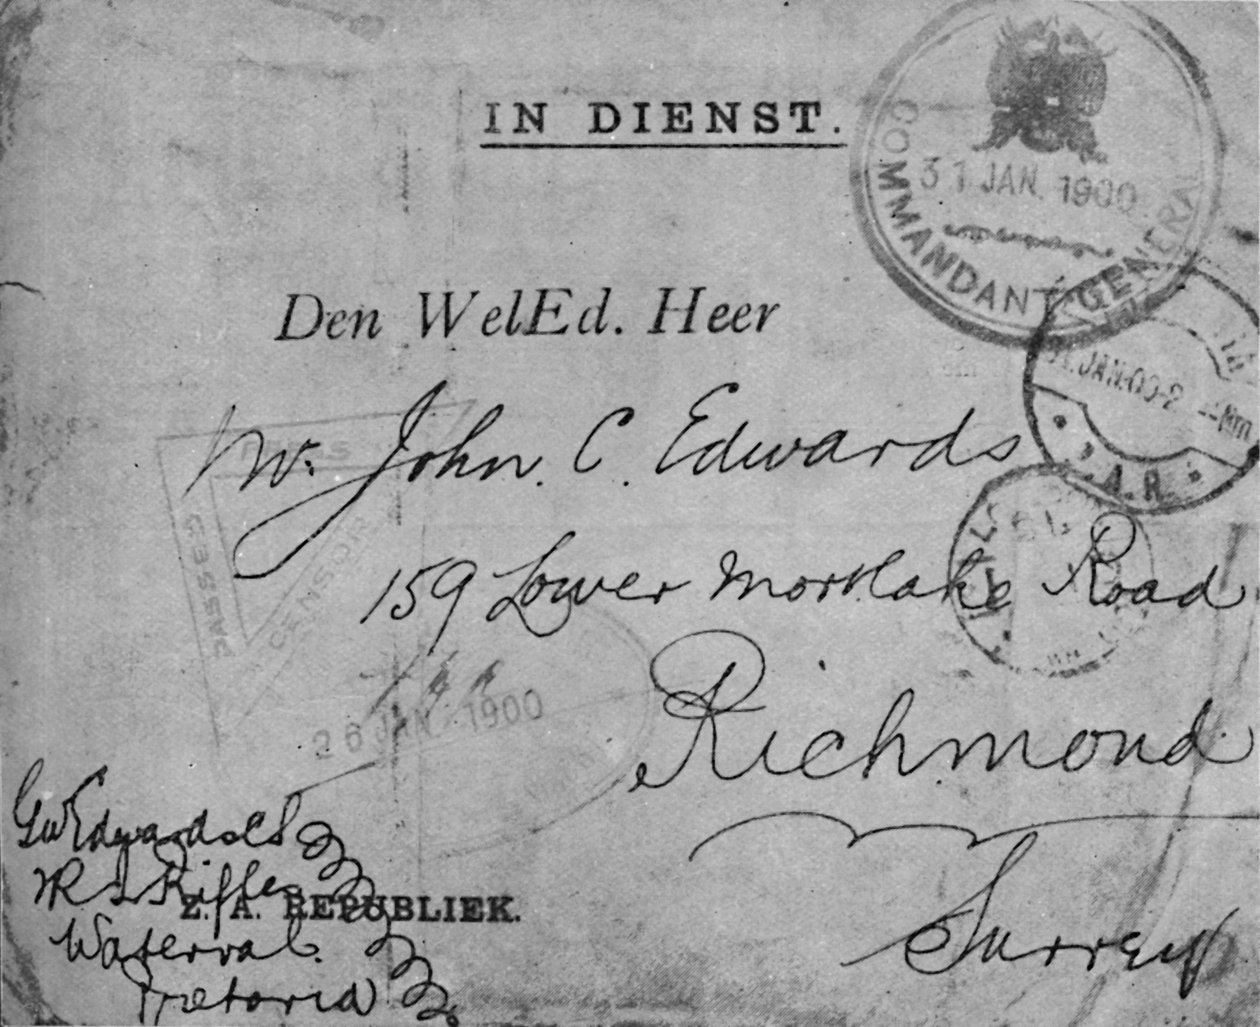 IN DIENST.
COMMANDANT GENERAL
31 JAN. 1900
Den WelEd. Heer
31.JAN.00-2
Z.A.R.
Mr. John. C. Edwards
PASSED
CENSOR
159 Lower Mortlake Road
26 JAN 1900
Richmond
Surrey
GW Edwards
R I Rifles
Z. A. REPUBLIEK.
Waterval.
Pretoria